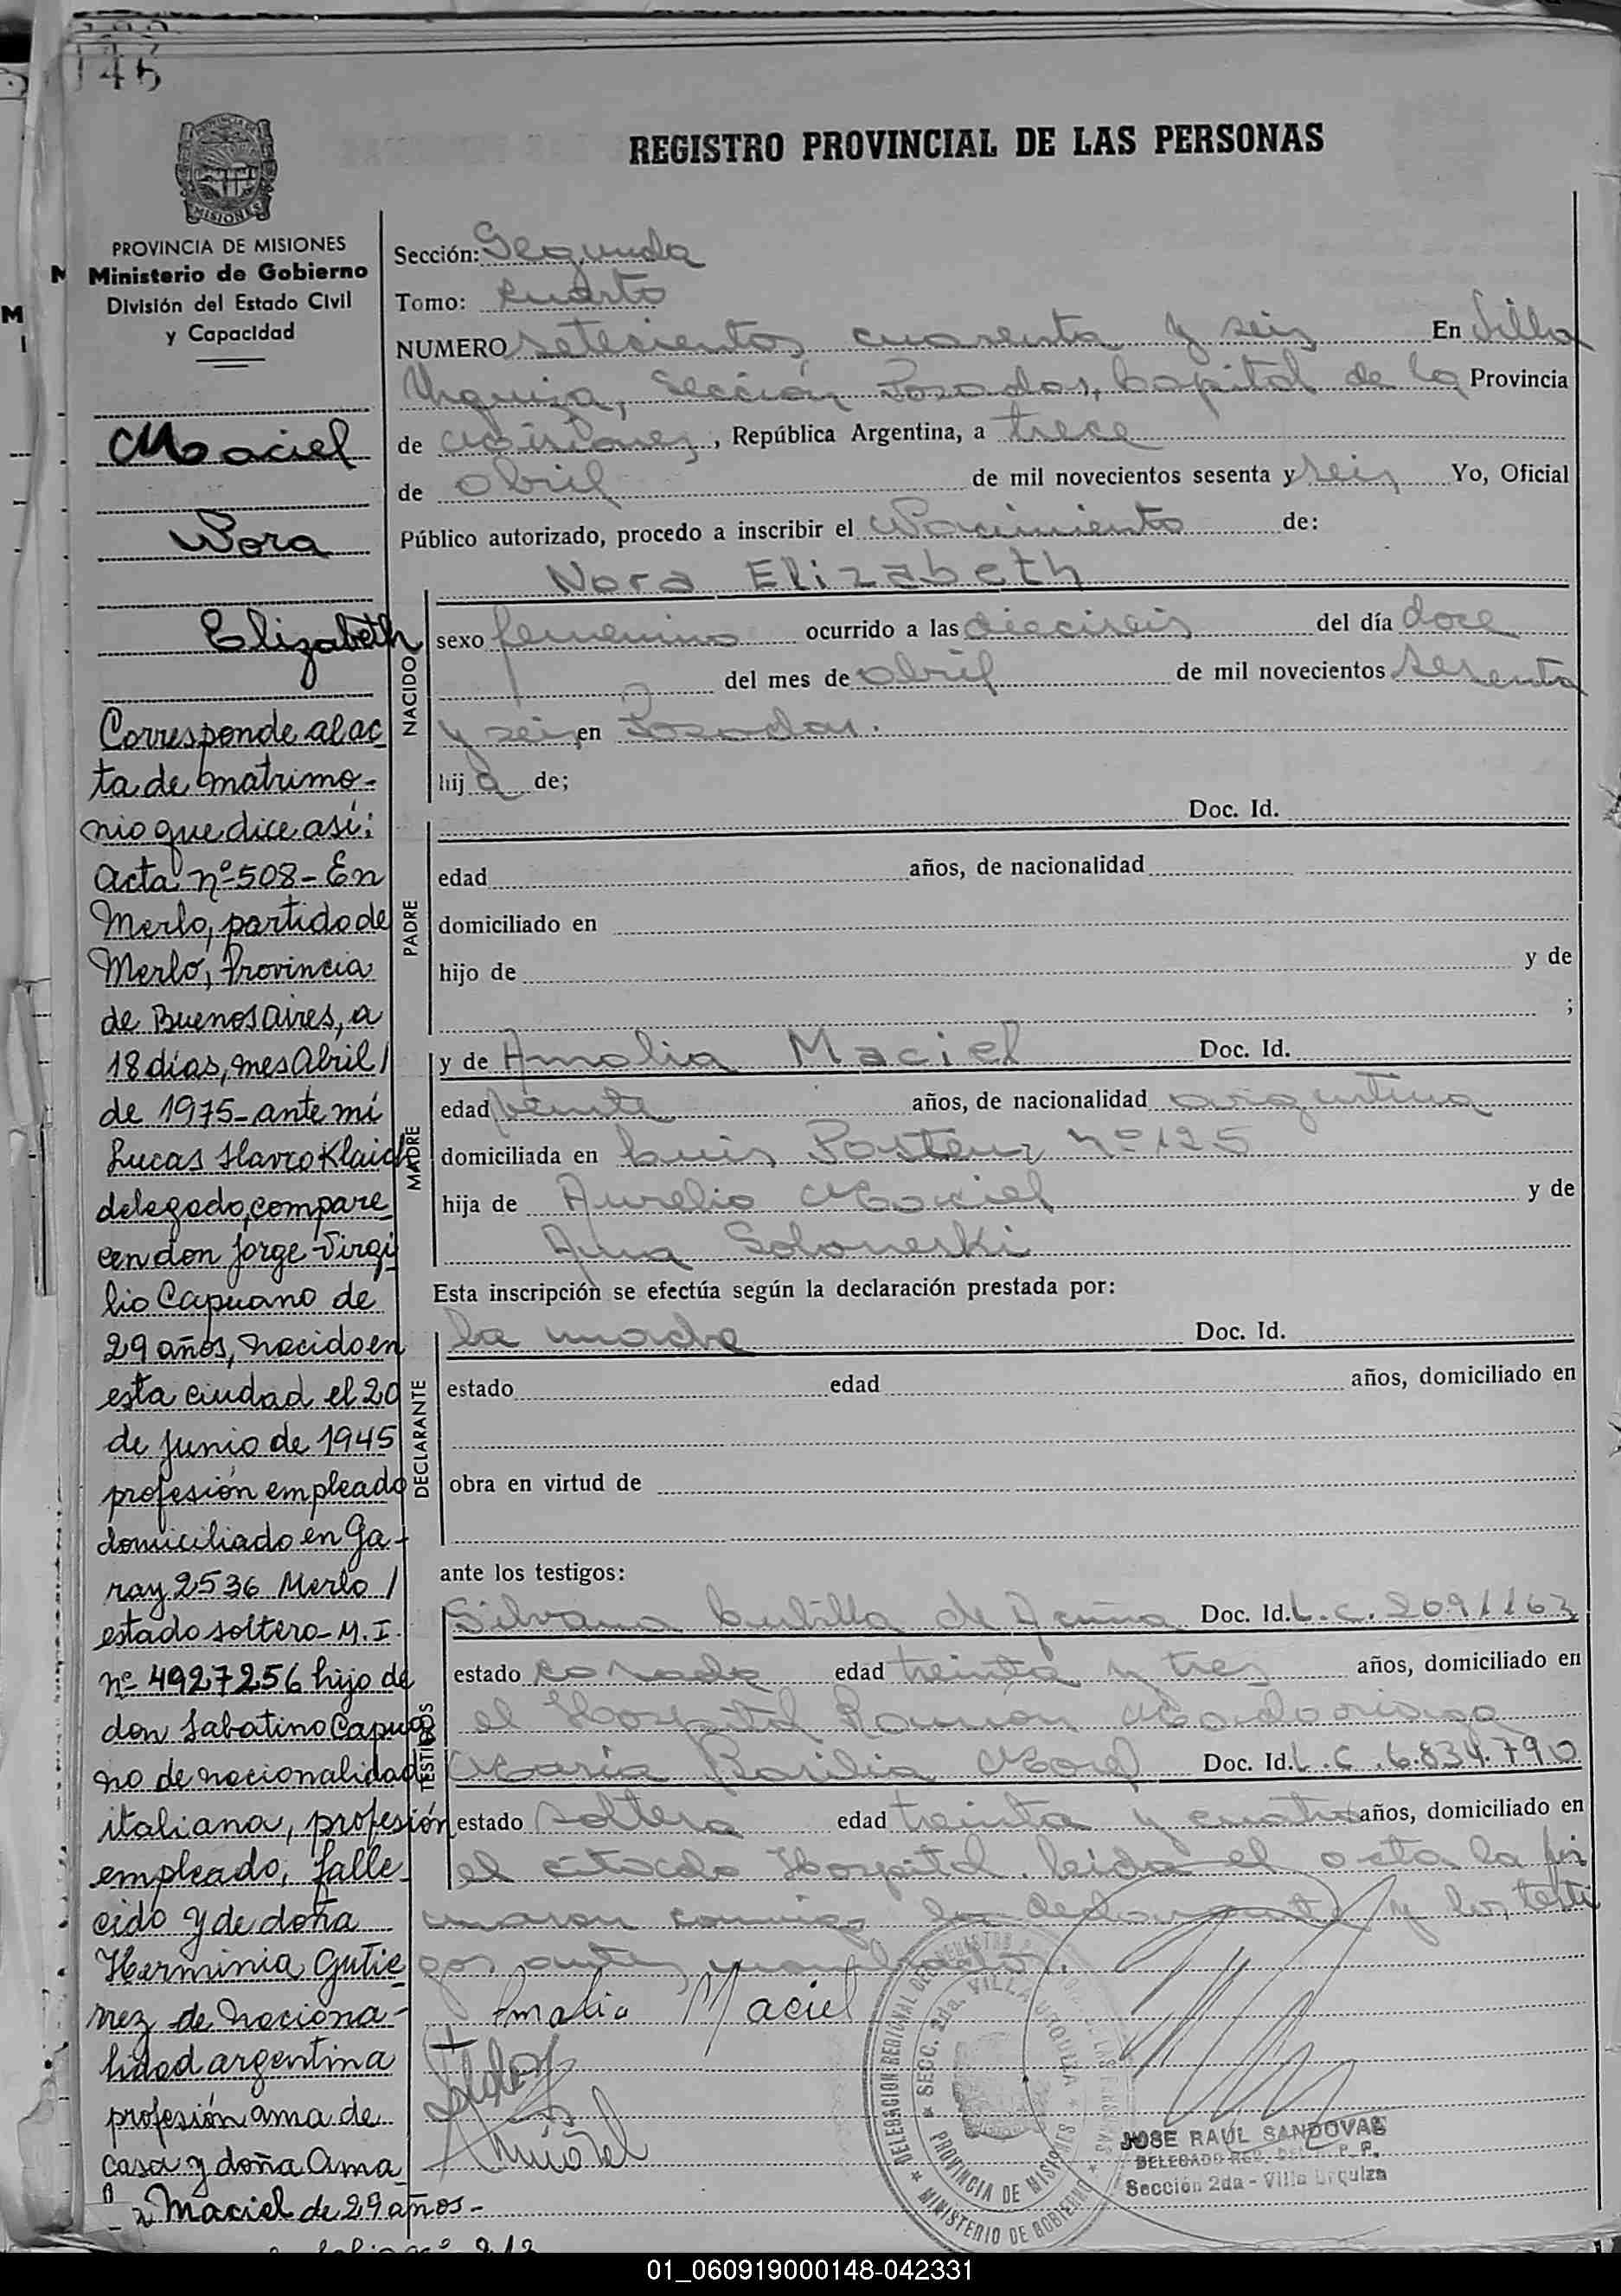 146
REGISTRO PROVINCIAL DE LAS PERSONAS
PROVINCIA DE MISIONES
Ministerio de Gobierno
División del Estado Civil
y Capacidad
Maciel
Nora
Elizabeth
Corresponde al ac
ta de matrimo-
nio que dice así:
Acta nº 508 - En
Merlo, partido de
Merlo, Provincia
de Buenos Aires, a
18 días, mes Abril /
de 1975 - ante mí
Lucas Slavco Klaich
delegado, compare
cen don Jorge Virgi
lio Capuano de
29 años, nacido en
esta ciudad el 20
de Junio de 1945
profesión empleado
domiciliado en Ga-
ray 2536 Merlo /
estado soltero - M.I.
nº 4927256 hijo de
don Sabatino Capua
no de nacionalidad
italiana, profesión
empleado, falle
cido y de doña
Herminia Gutie
rrez de naciona-
lidad argentina
profesión ama de
casa y doña Ama
Maciel de 29 años -
Sección: Segunda
Tomo: Cuarto
NUMERO setecientos cuarenta y seis En Villa
Urquiza, Sección Posadas, Capital de la Provincia
de Misiones, República Argentina, a trece
de abril de mil novecientos sesenta y seis Yo, Oficial
Público autorizado, procedo a inscribir el Nacimiento de:
Nora Elizabeth
NACIDO
sexo femenino ocurrido a las dieciseis del día doce
del mes de abril de mil novecientos sesenta
y seis en Posadas.
hij a de;
PADRE
Doc. Id.
edad años, de nacionalidad
domiciliado en
hijo de y de
;
MADRE
y de Amalia Maciel Doc. Id.
edad veinte años, de nacionalidad argentina
domiciliada en Luis Pasteur Nº 125
hija de Aurelio Maciel y de
Ana Soloneski
Esta inscripción se efectúa según la declaración prestada por:
DECLARANTE
la madre Doc. Id.
estado edad años, domiciliado en
obra en virtud de
ante los testigos:
TESTIGOS
Silvana Cubilla de Acuña Doc. Id. L.C. 2091163
estado casada edad treinta y tres años, domiciliado en
el Hospital Ramón Madariaga
María Basilia Morel Doc. Id. L.C. 6.834.790
estado soltera edad treinta y cuatro años, domiciliado en
el citado Hospital. leída el acta la fir
maron conmigo la declarante y los testi
gos antes nombrados.
Amalia Maciel
DELEGACION REGIONAL DEL REGISTRO PROVINCIAL DE LAS PERSONAS
SECC. 2da. VILLA URQUIZA
PROVINCIA DE MISIONES
MINISTERIO DE GOBIERNO
JOSE RAUL SANDOVAL
Sección 2da - Villa Urquiza
01_060919000148-042331